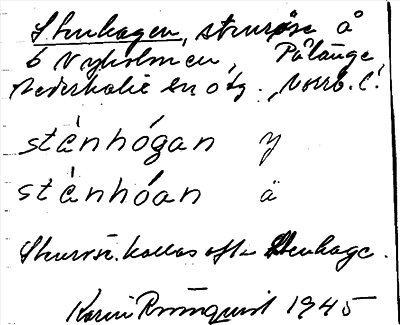 Stenhagen, stenröse å
ö Nyholmen, Pålänge
Nederkalix sn o tg. Norrb. l.
stènhógan y
stènhóan ä
Stenrös. kallas ofta Stenhage.
Karin Rönnquist 1945